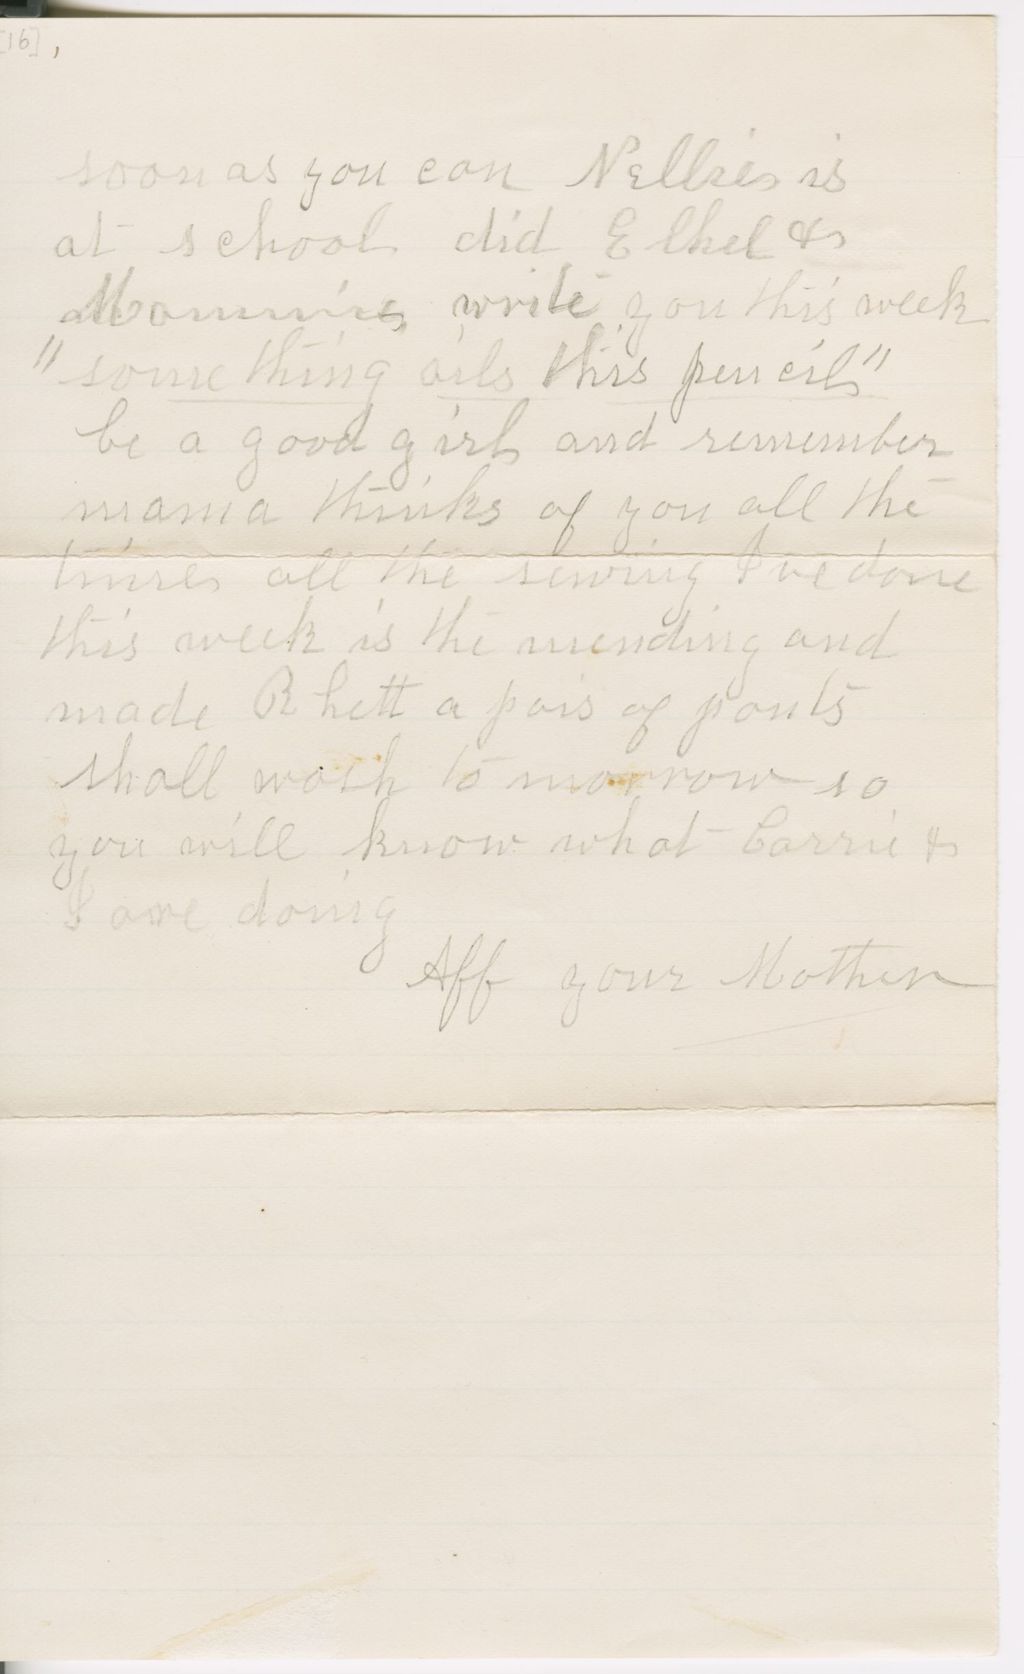 [16],
soon as you can Nellie is
at school did Ethel &
Mammie write you this week
"something ails this pencil"
be a good girl and remember
mama thinks of you all the
time all the sewing I've done
this week is the mending and
made Rhett a pair of pants
shall wash to morrow so
you will know what Carrie &
I are doing
Aff your Mother